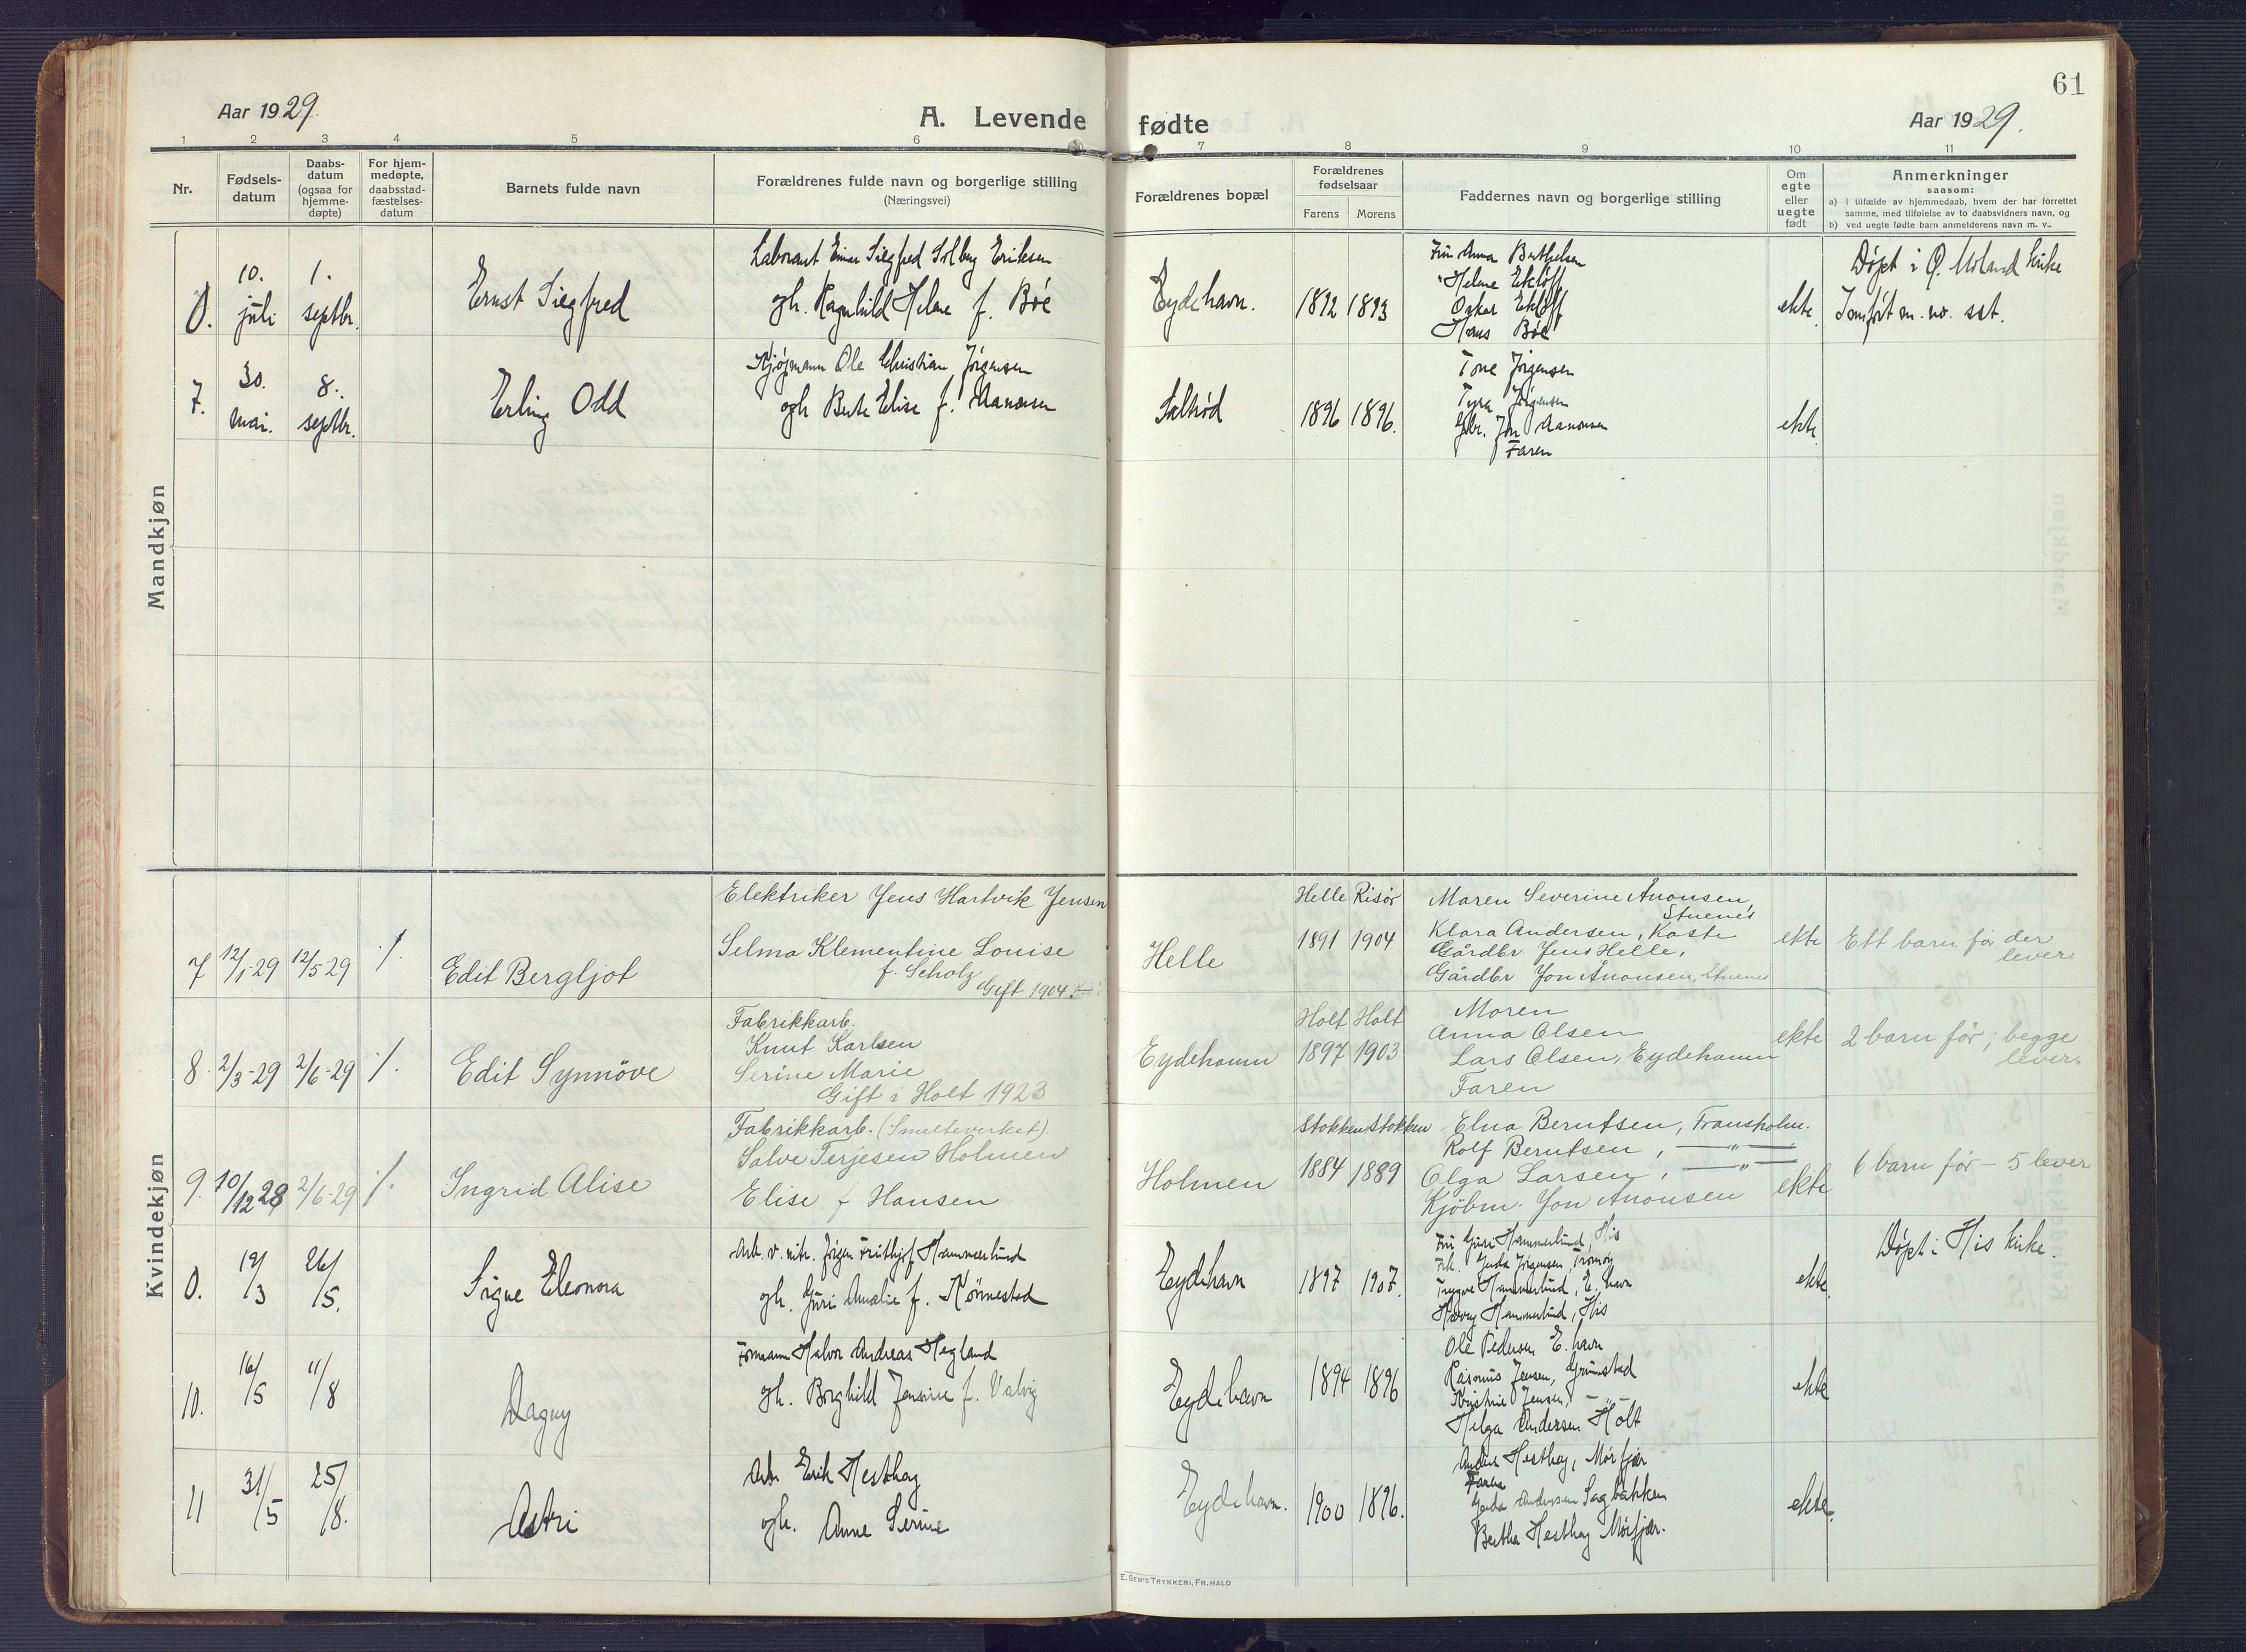 61
Aar 1929.
A. Levende fødte
Aar 1929.
1 2 3 4 5 6 7 8 9 10 11
Nr.
Fødsels-
datum
Daabs-
datum
(ogsaa for
hjemme-
døpte)
For hjem-
medøpte,
daabsstad-
fæstelses-
datum
Barnets fulde navn
Forældrenes fulde navn og borgerlige stilling
(Næringsvei)
Forældrenes bopæl
Forældrenes
fødselsaar
Farens Morens
Faddernes navn og borgerlige stilling
Om
egte
eller
uegte
født
Anmerkninger
saasom:
a) i tilfælde av hjemmedaab, hvem der har forrettet
samme, med tilføielse av to daabsvidners navn, og
b) ved uegte fødte barn anmelderens navn m. v..
Mandkjøn
0.
10.
juli
1.
septbr.
Ernst Siegfred
Laborant Einar Siegfred Solberg Eriksen
gh. Ragnhild Helene f. Bòe
Eydehavn.
1892 1893
Fru Anna Berthelsen
" Helene Ekløff
Oskar Ekløff
Hans Bòe
ekte
Døpt i Ø. Moland kirke
Innført m. no. sst.
7.
30.
mai.
8.
septbr.
Erling Odd
Kjøpmann Ole Christian Jørgensen
ogh Berte Elise f. Aanonsen
Saltrød
1896 1896.
Tone Jørgensen
Tyra Jørgensen
Gbr. Jon Aanonsen
Faren
ekte
Kvindekjøn
7
12/1-29
12/5-29
./.
Edit Bergljot
Elektriker Jens Hartvik Jensen
Selma Klementine Louise
f. Scholz
Gift 1904
Helle
Helle Risør
1891 1904
Maren Severine Ånonsen,
Stuenes
Klara Andersen, Kaste
Gårdbr Jens Helle,
Gårdbr Jon Ånonsen, Stuenes
ekte
Ett barn før der
lever.
8
2/3-29
2/6-29
./.
Edit Synnöve
Fabrikkarb.
Knut Karlsen
Serine Marie
Gift i Holt 1923
Eydehamn
Holt Holt
1897 1903
Moren
Anna Olsen
Lars Olsen, Eydehamn
Faren
ekte
2 barn før; begge
lever.
9.
10/12 28
2/6-29
./.
Ingrid Alise
Fabrikkarb. (Smelteverket)
Salve Terjesen Holmen
Elise f Hansen
Holmen
Stokken Stokken
1884 1889
Elna Berntsen, Fransholm.
Rolf Berntsen, — " —
Olga Larsen, — " —
Kjöbm. Jon Ånonsen
ekte
6 barn før - 5 lever
0.
19/3
26/5.
Signe Eleonora
Arb. v. nitr. Jørgen Fritthjof Hammerlund
gh. Guri Amalie f. Rønnestad
Eydehavn
1897 1907.
Fru Guri Hammerlund, His
Frk. Gerda Jørgensen, Tromøy
Trygve Hammerlund, E. havn
Harry Hammerlund, His
ekte
Døpt i His kirke.
10.
16/5
11/8
Dagny
Formann Halvor Andreas Hegland
gh. Borghild Jensine f. Valvig
Eydehavn
1894 1896
Ole Pedersen E. havn
Rasmus Jensen, Grimstad
Kristine Jensen, — " —
Helga Andersen Holt
ekte
11
31/5
25/8.
Astri
Arb. Erik Hesthag
ogh. Anne Serine
Eydehavn.
1900 1896.
Anders Hesthag, Mørfjær
Faren
Gerda Andersen Sagbakken
Bertha Hesthag Mørfjær.
ekte
E. Sem's Trykkeri, Fr.hald